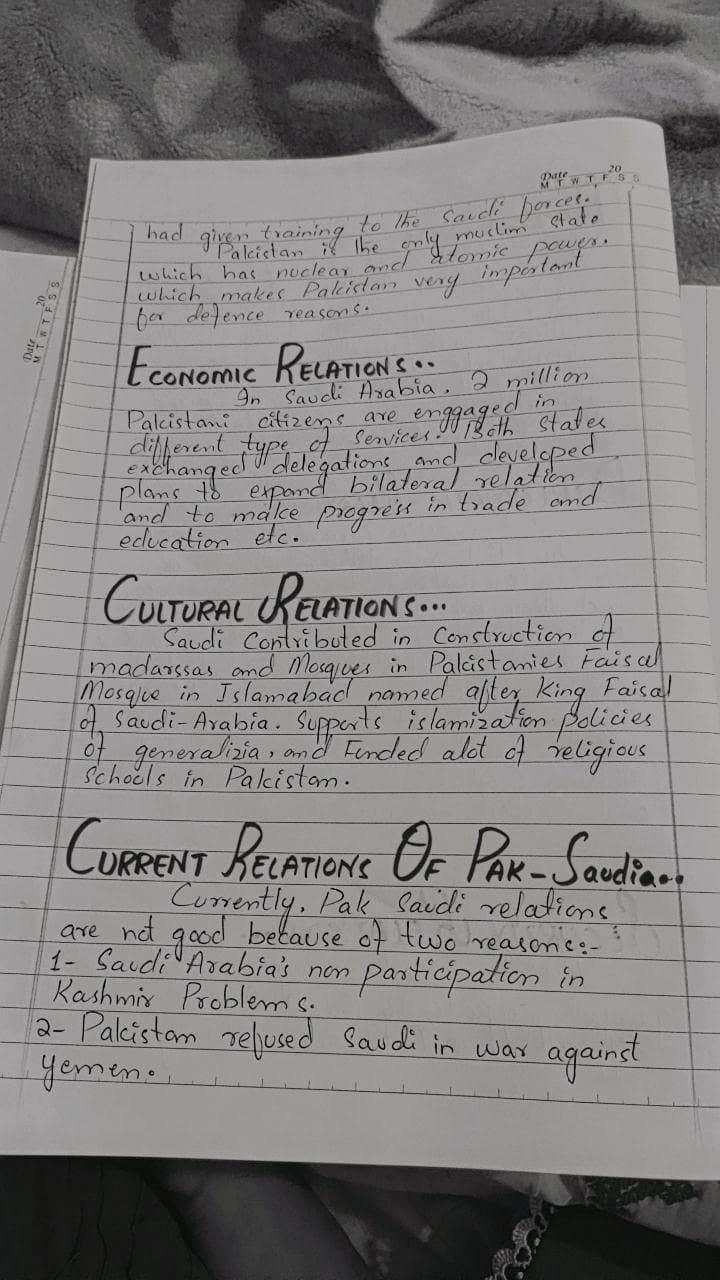 Date 20
M T W T F S S
had given training to the Saudi forces.
Pakistan is the only muslim state
which has nuclear and atomic power.
which makes Pakistan very important
for defence reasons.
ECONOMIC RELATIONS..
In Saudi Arabia. 2 million
Pakistani citizens are enggaged in
different type of services. Both states
exchanged delegations and developed
plans to expand bilateral relation
and to make progress in trade and
education etc.
CULTURAL RELATIONS...
Saudi Contributed in Construction of
madarssas and Mosques in Pakistanies Faisal
Mosque in Islamabad named after King Faisal
of Saudi-Arabia. Supports islamization policies
of generalizia, and Funded alot of religious
Schools in Pakistan.
CURRENT RELATIONS OF PAK-Saudia..
Currently, Pak Saidi relations
are not good because of two reasons:-
1- Saudi Arabia's non participation in
Kashmir Problems.
2- Pakistan refused Saudi in war against
Yemen.
Date 20
M T W T F S S